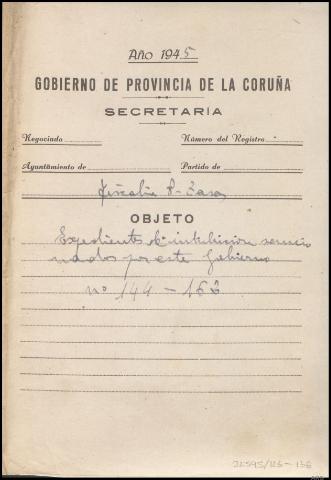 Año 1945
GOBIERNO DE PROVINCIA DE LA CORUÑA
SECRETARÍA
Negociado Número del Registro
Ayuntamiento de Partido de
Fiscalía P. Tasas
OBJETO
Expedientes de sancio
nados por este Gobierno
nº 144 - 163